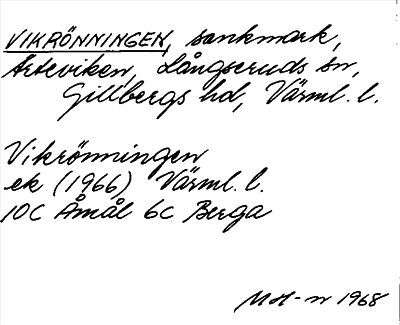 VIKRÖNNINGEN, sankmark,
Arteviken, Långseruds sn,
Gillbergs hd, Värml. l.
Vikrönningen
ek (1966) Värml. l.
10C Åmål 6c Berga
1968